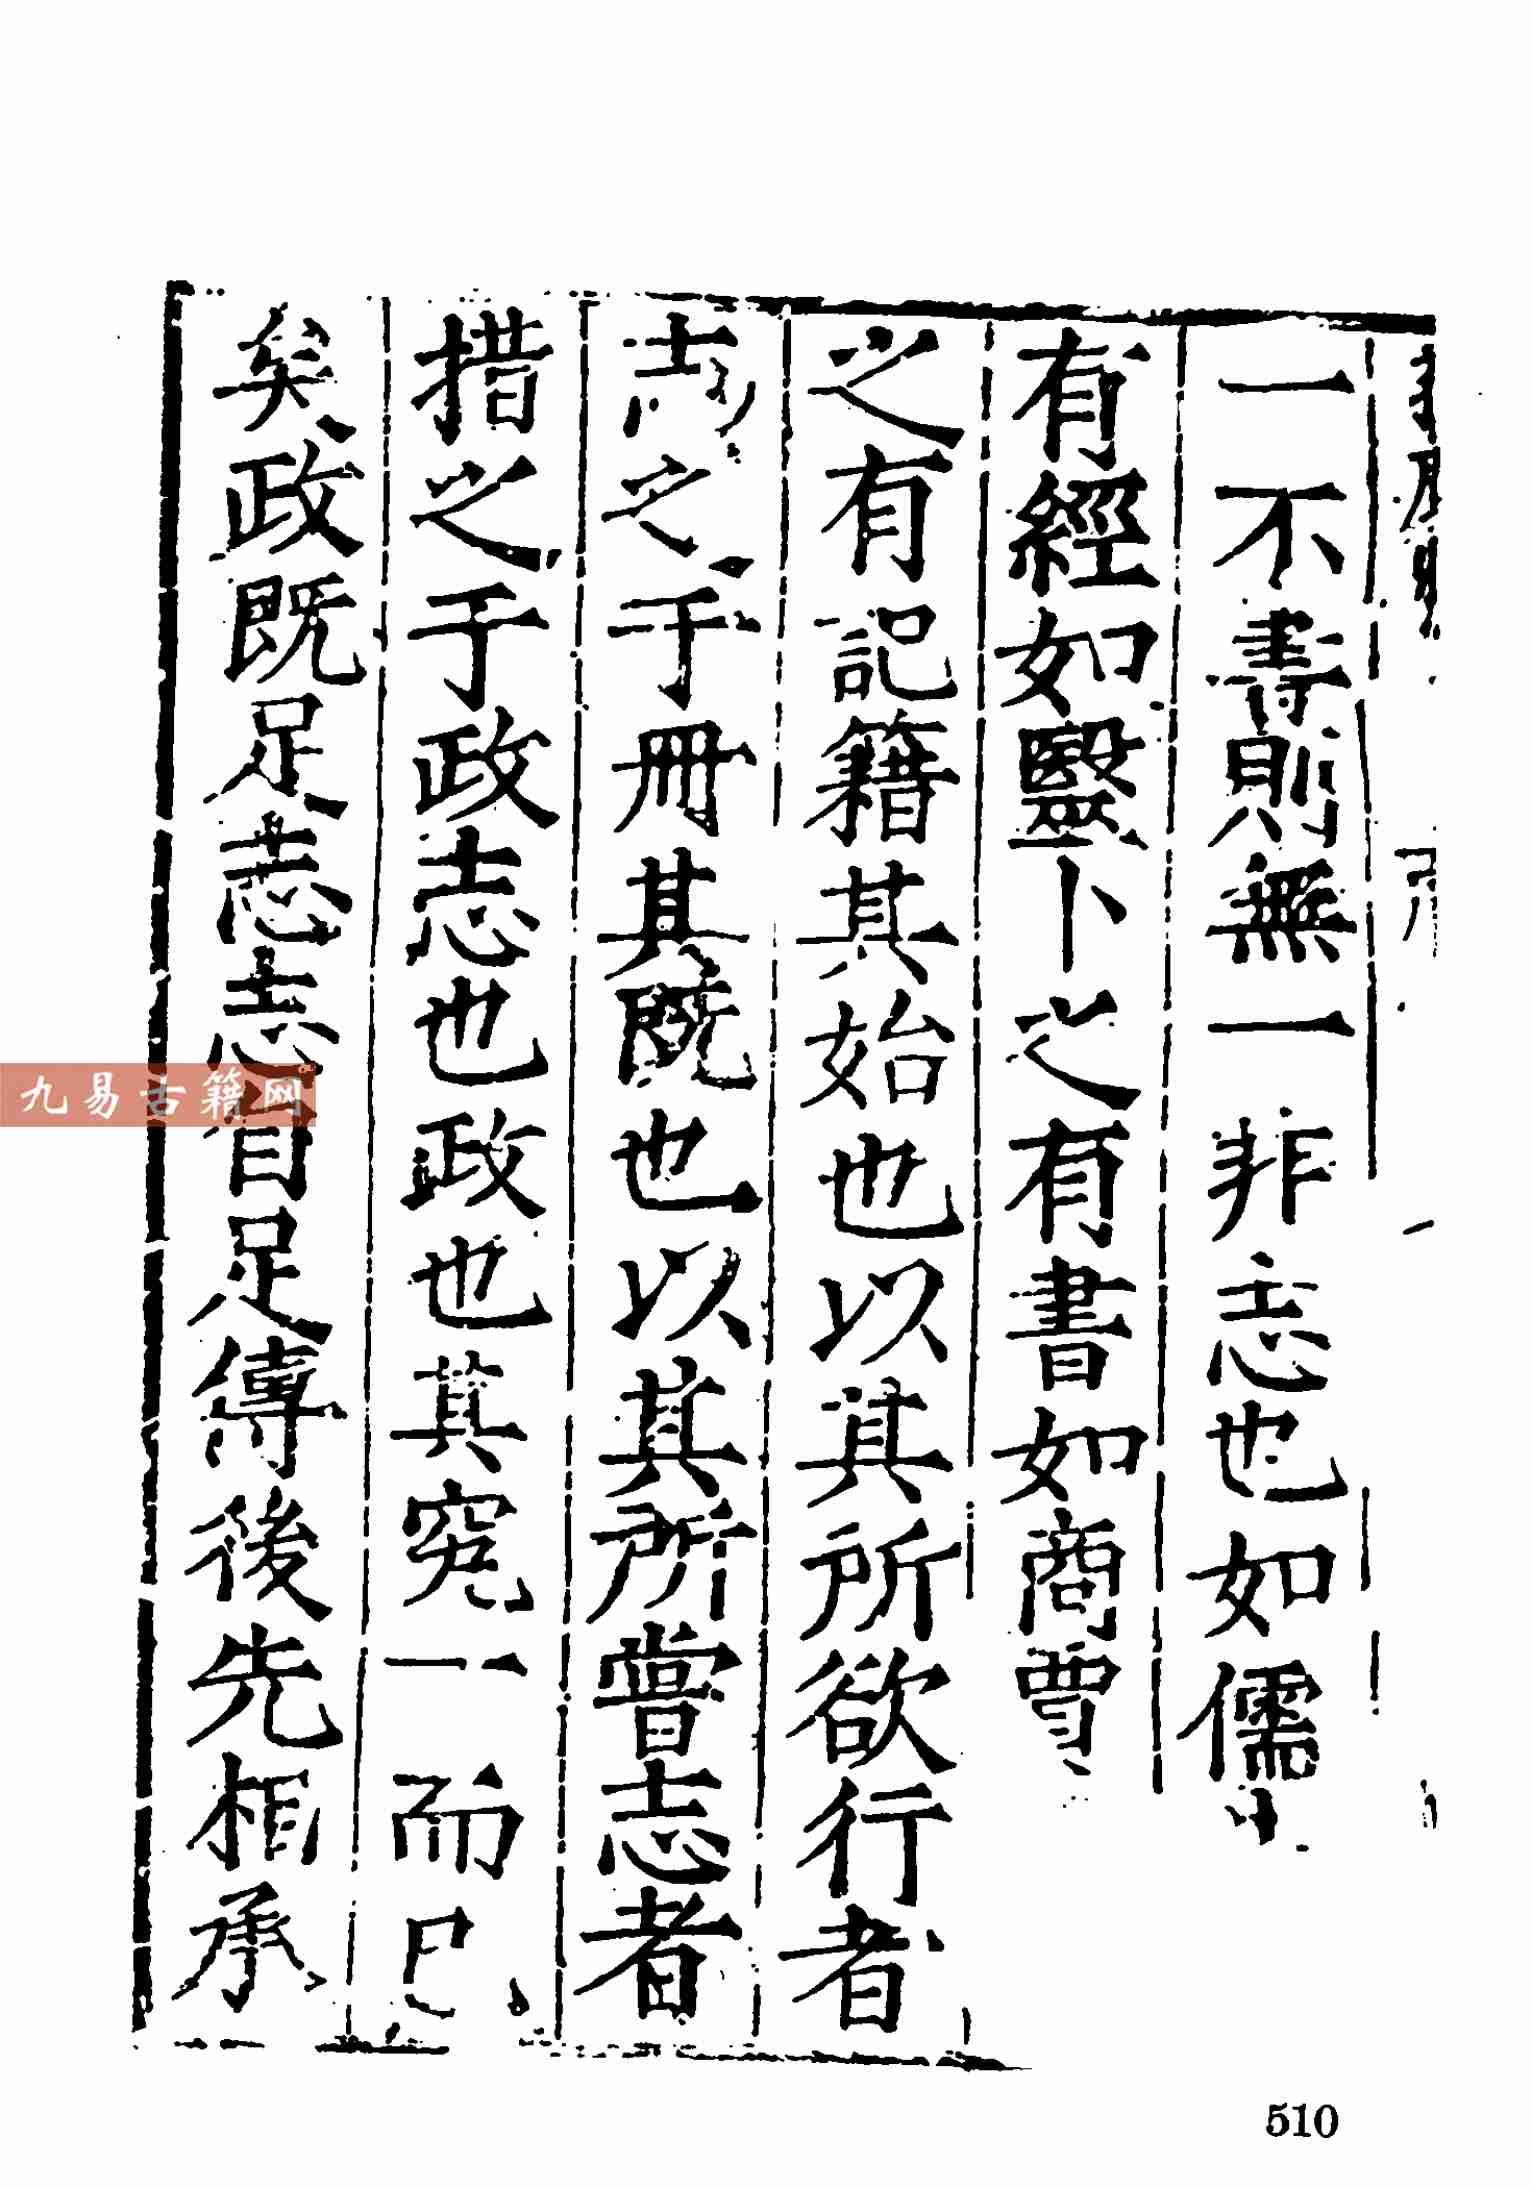 一不書則無一非志也如儒
有經如毉卜之有書如商賈
之有記籍其始也以其所欲行者
志之于冊其既也以其所嘗志者
措之于政志也政也其究一而已
矣政既足志志自足傳後先相承
九易古籍网
510